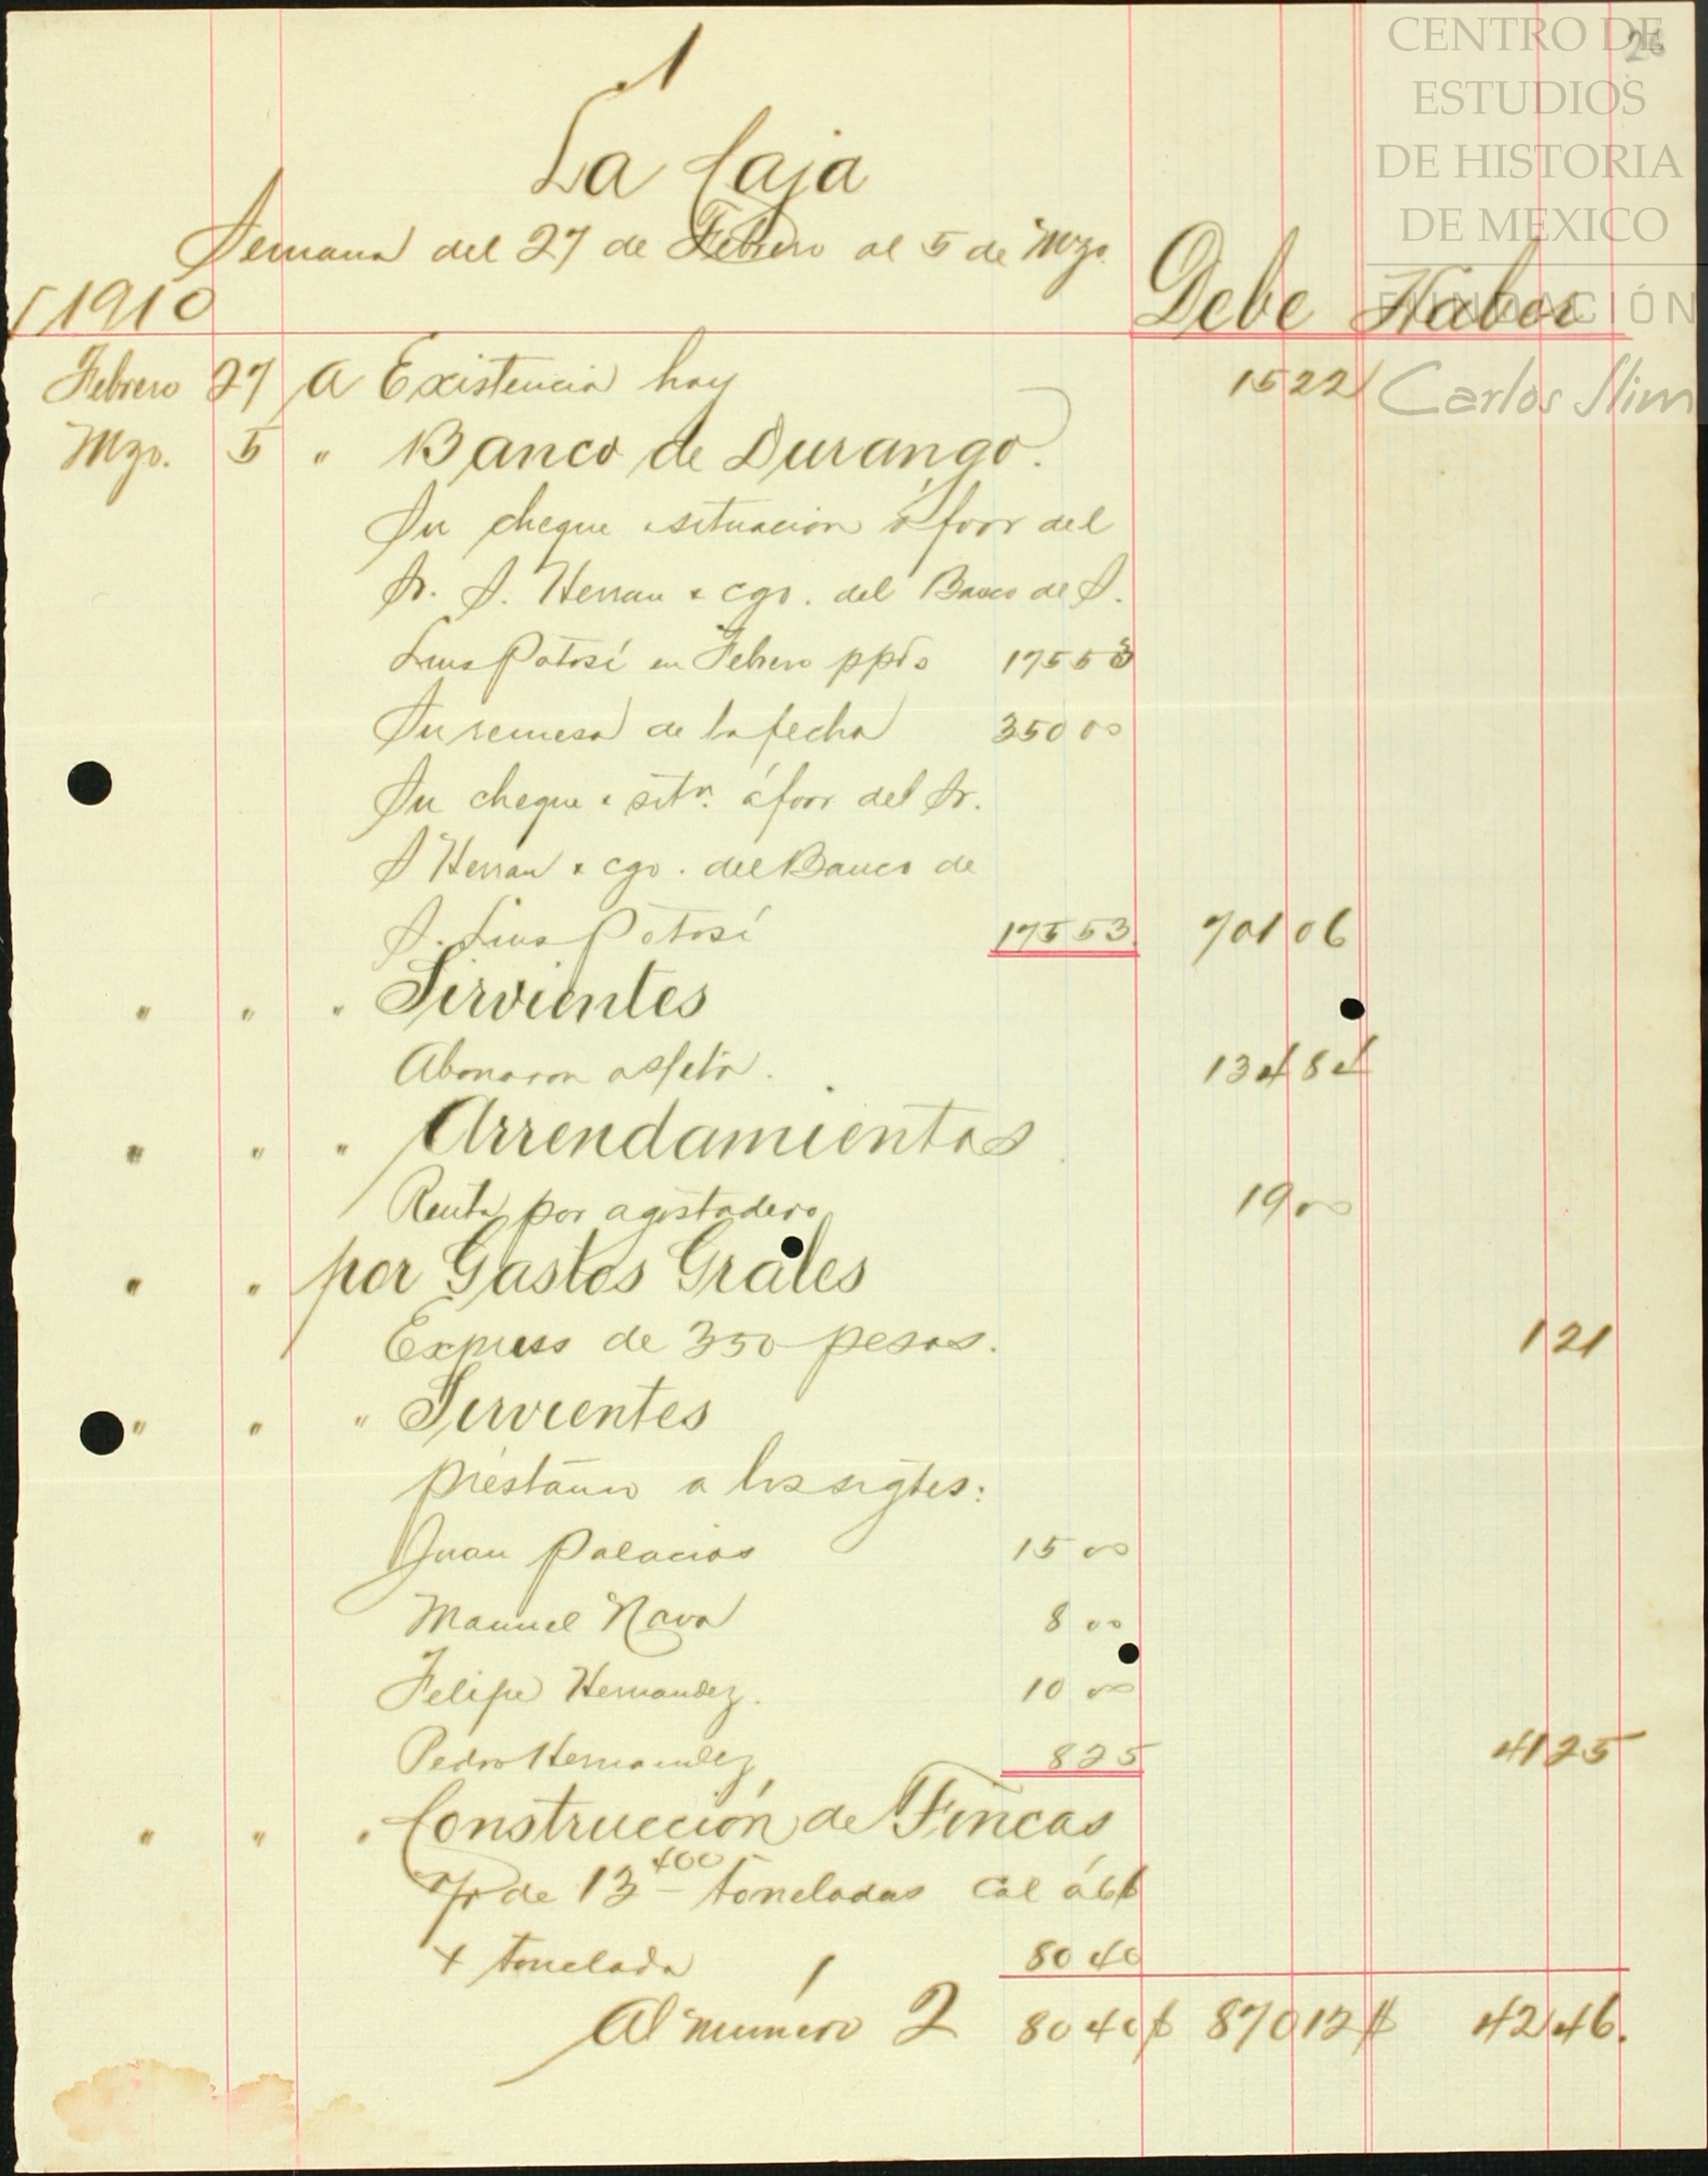 1
26
CENTRO DE
ESTUDIOS
DE HISTORIA
DE MEXICO
FUNDACIÓN
Carlos Slim
La Caja
Semana del 27 de Febrero al 5 de Mzo.
1910 Debe Haber
Febrero 27 A Existencia hoy 15 22
Mzo. 5 " Banco de Durango.
Su cheque situacion á fvor del
Sr. S. Herran x cgo. del Banco de S.
Luis Potosí en Febrero ppdo 175 53
Su remesa de la fecha 350 00
Su cheque sitn. á fvor del Sr.
S Herran x cgo. del Banco de
S. Luis Potosí 175 53 701 06
" " " Sirvientes
Abonaron 134 84
" " " Arrendamientos
Renta por agostadero 19 00
" " por Gastos Grales
Express de 350 pesos. 1 21
" " " Sirvientes
Préstamo a los sigtes:
Juan Palacios 15 00
Manuel Nava 8 00
Felipe Hernandez. 10 00
Pedro Hernandez 8 25 41 25
" " " Construcción de Fincas
de 13 400 toneladas Cal á 6
tonelada 80 40
Al número 2 80 40 $ 870 12 $ 42 46.